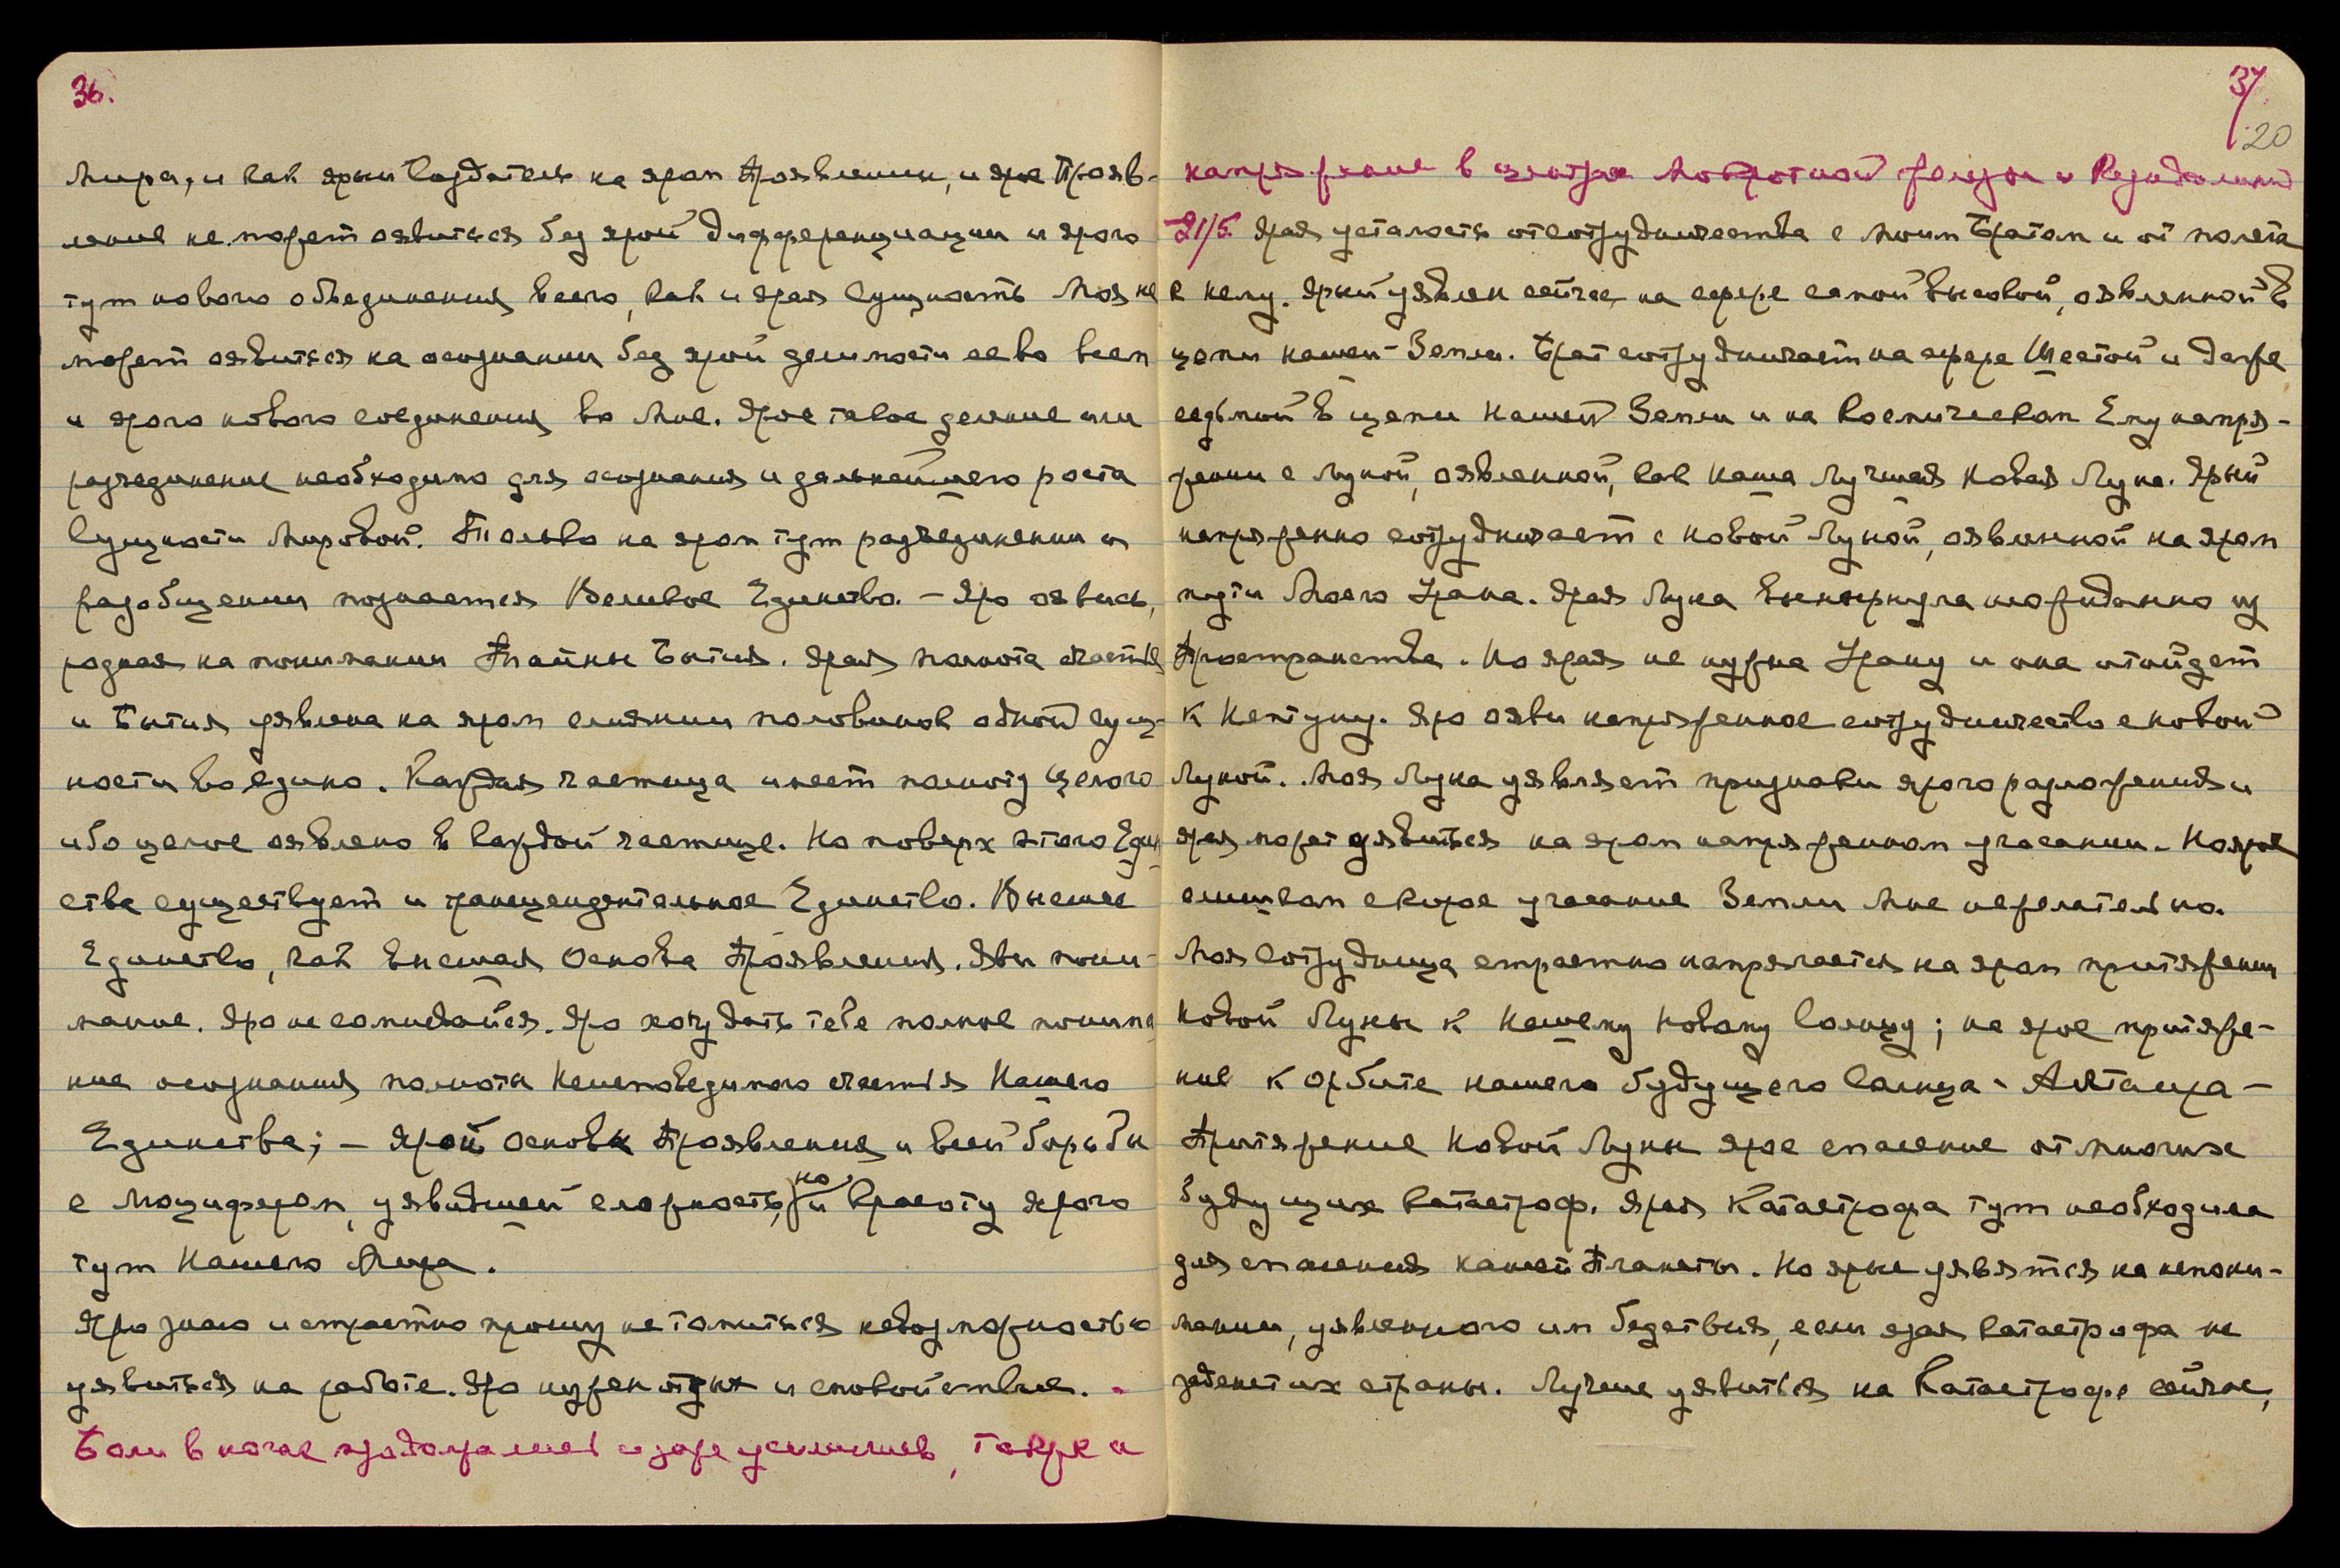 36.
Мира, и как ярый Создатель на яром Проявлении, и ярое Прояв-
ление не может оявиться без ярой дифференциации и ярого
тут нового объединения всего, как и ярая Сущность Моя не
может оявиться на осознании без ярой делимости ее во всем
и ярого нового соединения во Мне. Ярое такое деление или
разъединение необходимо для осознания и дальнейшего роста
Сущности Мировой. Только на яром тут разъединении и
разобщении познается Великое Единство. – Яро оявись,
родная на понимании Тайны Бытия. Ярая полнота счастья
и Бытия уявлена на яром слиянии половинок одной сущ-
ности во едино. Каждая частица имеет полноту целого
ибо целое оявлено в каждой частице. Но поверх этого Един-
ства существует и трансцендентальное Единство. Высшее
Единство, как высшая Основа Проявления. Яви пони-
мание. Яро не сомневайся. Яро хочу дать тебе полное понима-
ние осознания полноты Неисповедимого счастья Нашего
Единства; – Ярой Основы Проявления и всей борьбы
с Люцифером, уявившей сложность, но и красоту ярого
тут Нашего Мира.
Яро знаю и страстно прошу не томиться невозможностью
уявиться на работе. Яро нужен отдых и спокойствие.
Боли в ногах продолжались и даже усилились, также и
37
20
напряжение в центре Мокротной железы и Кундалини
21/5. Ярая усталость от сотрудничества с Моим Братом и от полета
к нему. Ярый уявлен сейчас на сфере самой высокой, оявленной в
цепи нашей Земли. Брат сотрудничает на сфере Шестой и даже
седьмой в цепи Нашей Земли и на Космическом Ему напря-
жении с Луной, оявленной, как Наша Лучшая Новая Луна. Ярый
напряженно сотрудничает с новой Луной, оявленной на яром
пути Моего Урана. Ярая Луна вынырнула неожиданно из
Пространства. Но ярая не нужна Урану и она отойдет
к Нептуну. Яроояви напряженное сотрудничество с новой
Луной. Моя Луна уявляет признаки ярого разложения и
ярая может уявиться на яром напряженном угасании. Но ярое
слишком скорое угасание Земли Мне нежелательно.
Моя Сотрудница страстно напрягается на яром притяжении
Новой Луны к Нашему Новому Солнцу; на ярое притяже-
ние к орбите нашего будущего Солнца - Альтаира –
Притяжение Новой Луны ярое спасение от многих
будущих катастроф. Ярая Катастрофа тут необходима
для спасения нашей Планеты. Но ярые уявятся на непони-
мании, уявленного им бедствия, если ярая катастрофа не
заденет их страны. Лучше уявиться на Катастрофе сейчас,